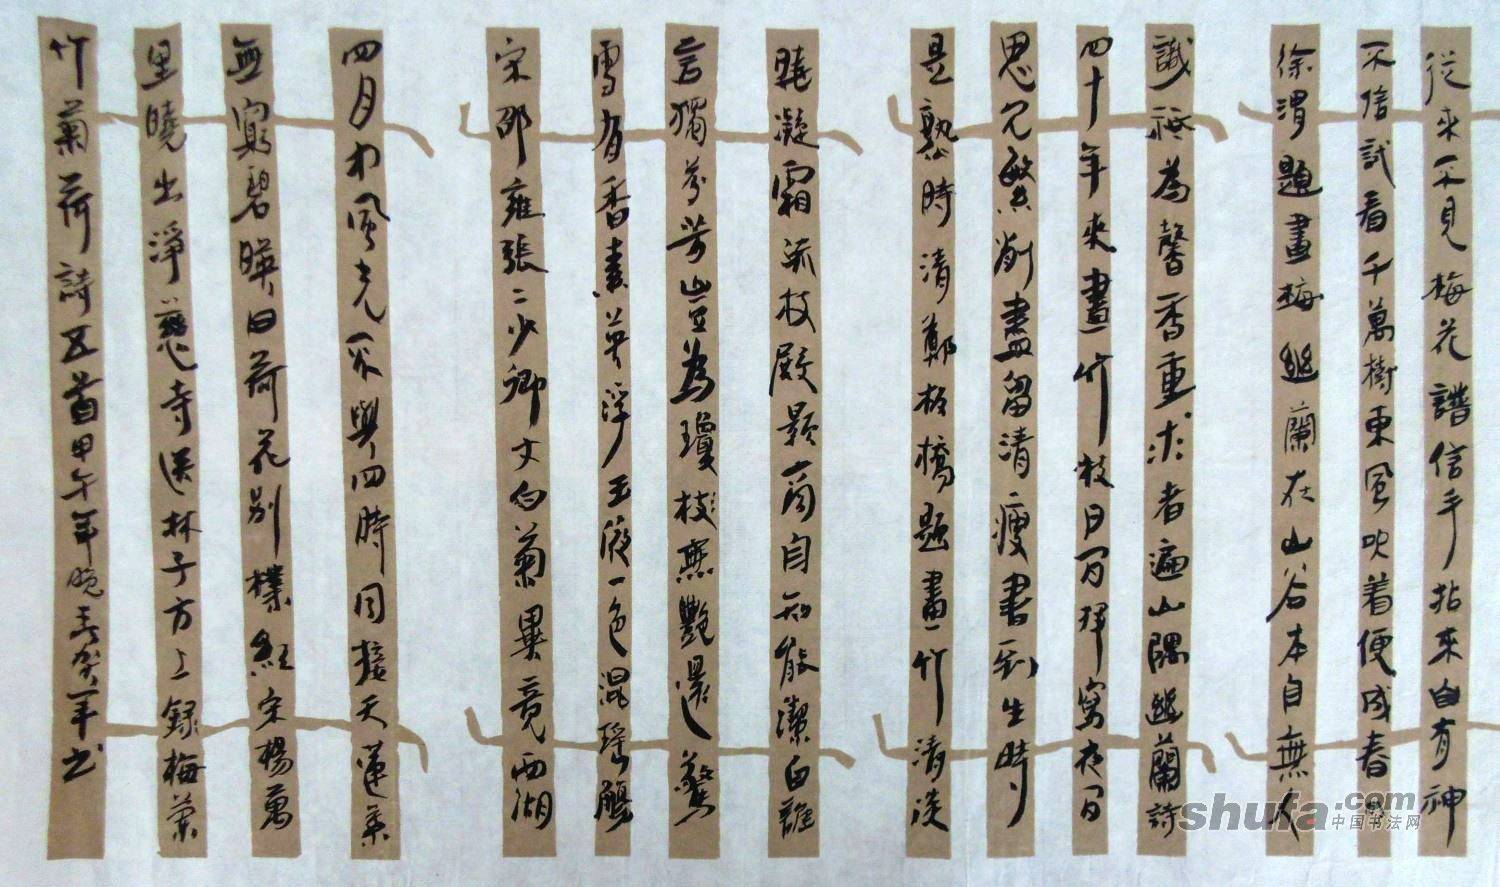 從來不見梅花譜信手拈來自有神
不信試看千萬樹東風吹着便成春
徐渭題畫梅幽蘭在山谷本自無人
識祗為馨香重求者遍山隅幽蘭詩
四十年來畫竹枝日間揮寫夜間
思冗繁削盡留清瘦畫到生時
是熟時清鄭板橋題畫竹清淡
曉凝霜疏枝殿顥商自知能潔白誰
言獨芬芳豈為瓊枝無艷還驚
雪有香素英浮玉液一色混瑤觴
宋邵雍張二少卿丈白菊畢竟西湖
四月中風光不與四時同接天蓮葉
無窮碧映日荷花別樣紅宋楊萬
里曉出淨慈寺送林子方上錄梅蘭
竹菊荷詩五首甲午年晚春書
shufa.com
中国书法网